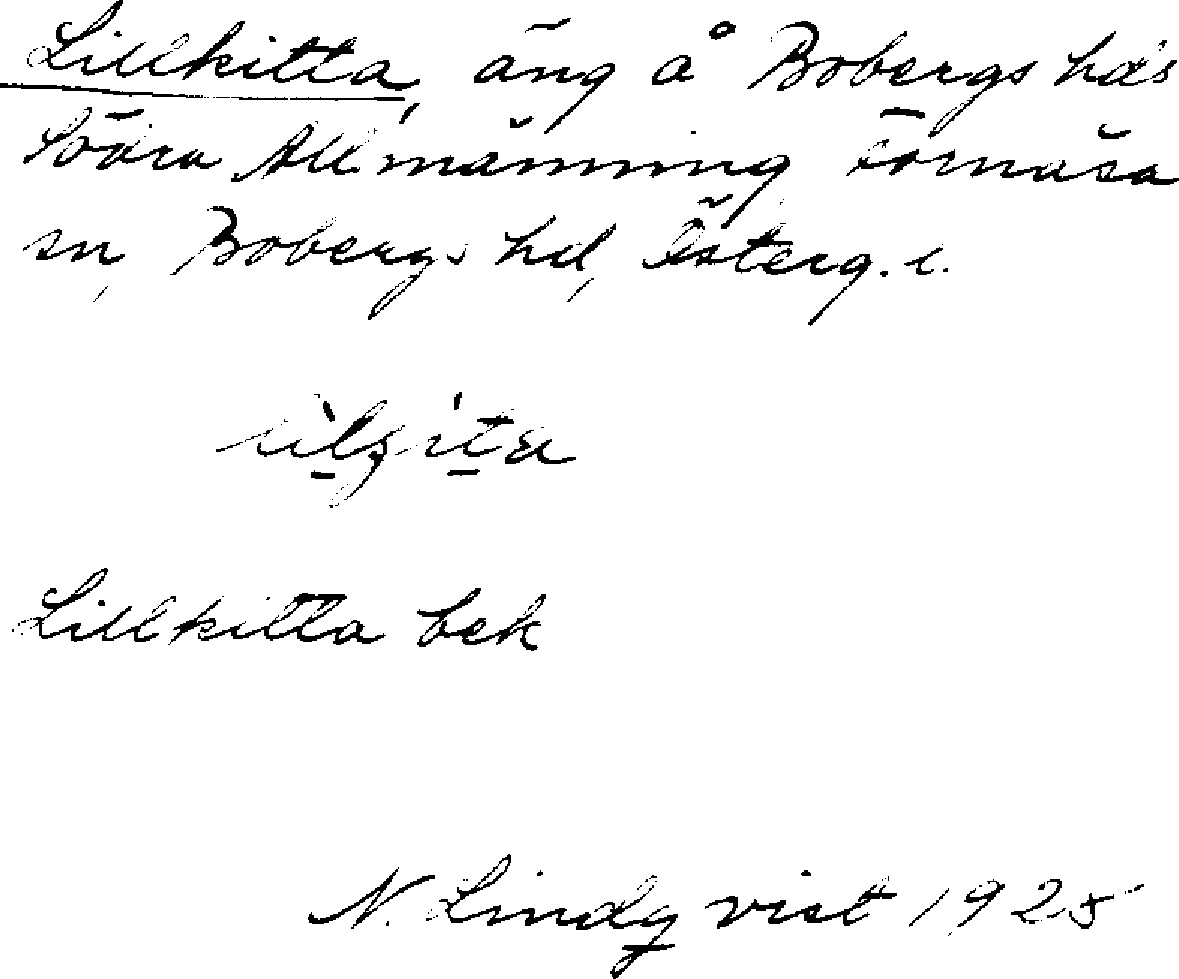 Lillkitta, äng å Bobergs hd's
Södra Allmänning Fornåsa
sn, Bobergs hd, Österg. l.
Lillkitta bek
N. Lindqvist 1925